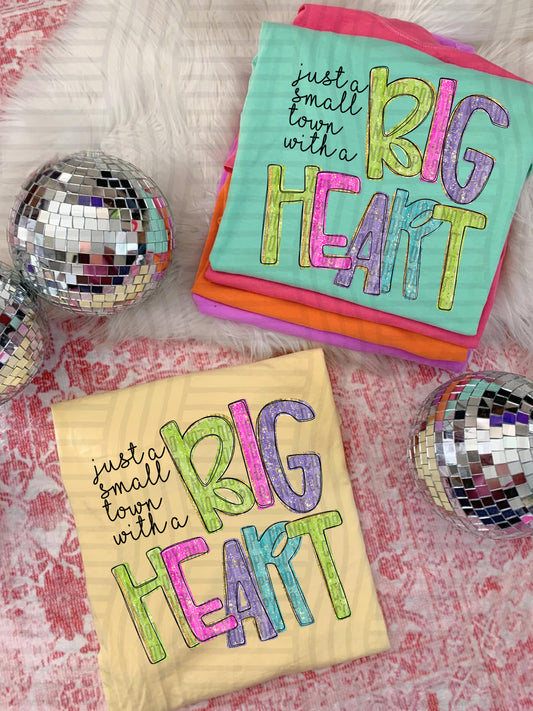 just a
small
town
with a
BIG
HEART
just a
small
town
with a
BIG
HEART